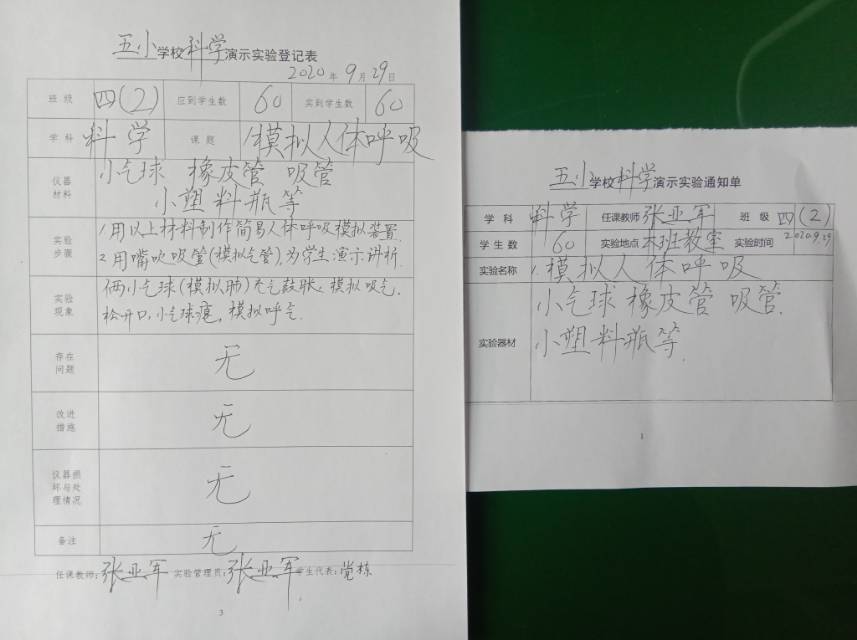 五小学校科学演示实验登记表
2020年9月29日
班级 四(2) 应到学生数 60 实到学生数 60
学科 科学 课题 1模拟人体呼吸
仪器材料 小气球 橡皮管 吸管
小塑料瓶等
实验步骤 1.用以上材料制作简易人体呼吸模拟装置.
2.用嘴吹吸管(模拟气管).为学生演示讲析.
实验现象 俩小气球(模拟肺)充气鼓胀,模拟吸气.
松开口,小气球瘪,模拟呼气.
存在问题 无
改进措施 无
仪器损坏与处理情况 无
备注 无
任课教师:张亚军 实验管理员:张亚军 学生代表:党栋
3
五小学校科学演示实验通知单
学科 科学 任课教师 张亚军 班级 四(2)
学生数 60 实验地点 本班教室 实验时间 2020.9.29
实验名称 1.模拟人体呼吸
实验器材 小气球 橡皮管 吸管.
小塑料瓶等.
1